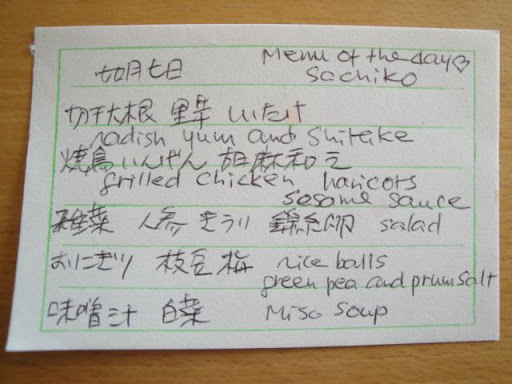 Menu of the day♡
如月七日
Sachiko
切干大根 里芋 しいたけ
radish yum and Shiteike
焼鳥 いんげん 胡麻和え
grilled chicken haricots
sesame sauce
人参 きうり 錦糸卵 salad
おにぎり 枝豆 梅 rice balls
green pea and prum salt
味噌汁 白菜 Miso soup